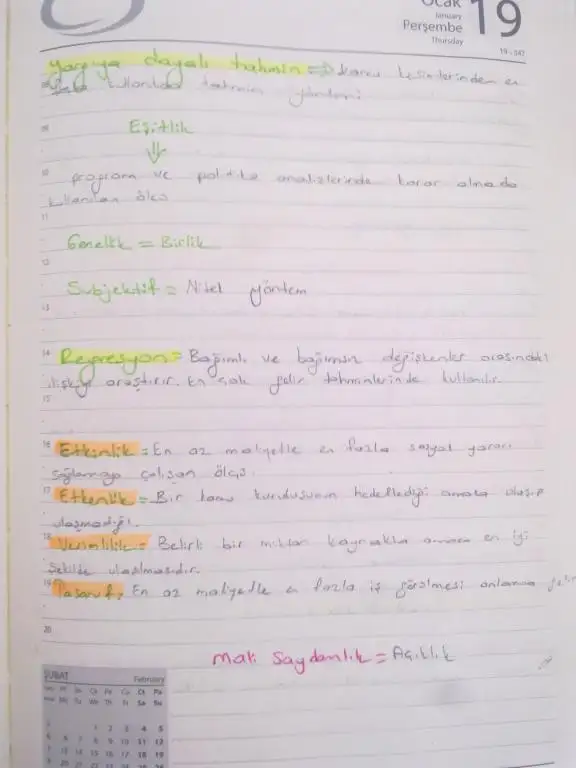 Ocak
January
Perşembe
Thursday
19
19 - 347
yargıya dayalı tahmin => kamu kesimlerinden en
kullanılan tahmin yöntemi
09
Eşitlik
10 program ve politika analizlerinde karar almada
kullanılan ölçü
11
Genellik = Birlik
12
Subjektif = Nitel yöntem
13
14 Regresyon = Bağımlı ve bağımsız değişkenler arasındaki
ilişkiyi araştırır. En çok gelir tahminlerinde kullanılır.
15
16 Etkinlik = En az maliyetle en fazla sosyal yararı
sağlamaya çalışan ölçü.
17 Etkenlik = Bir kamu kuruluşunun hedeflediği amaca ulaşıp
ulaşmadığı.
18 Verimlilik = Belirli bir miktar kaynakla amaca en iyi
şekilde ulaşılmasıdır.
19 Tasarruf: En az maliyetle en fazla iş görülmesi anlamına
20
Mali Saydamlık = Açıklık
ŞUBAT February
Sa Su
1 2 3 4 5
6 7 8 9 10 11 12
13 14 15 16 17 18 19